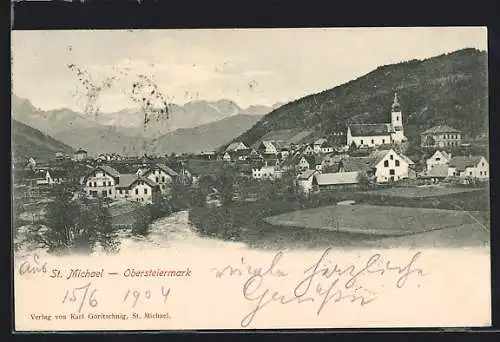 Aus St. Michael — Obersteiermark
viele herzliche
15/6 1904 Grüsse
Verlag von Karl Goritschnig, St. Michael.